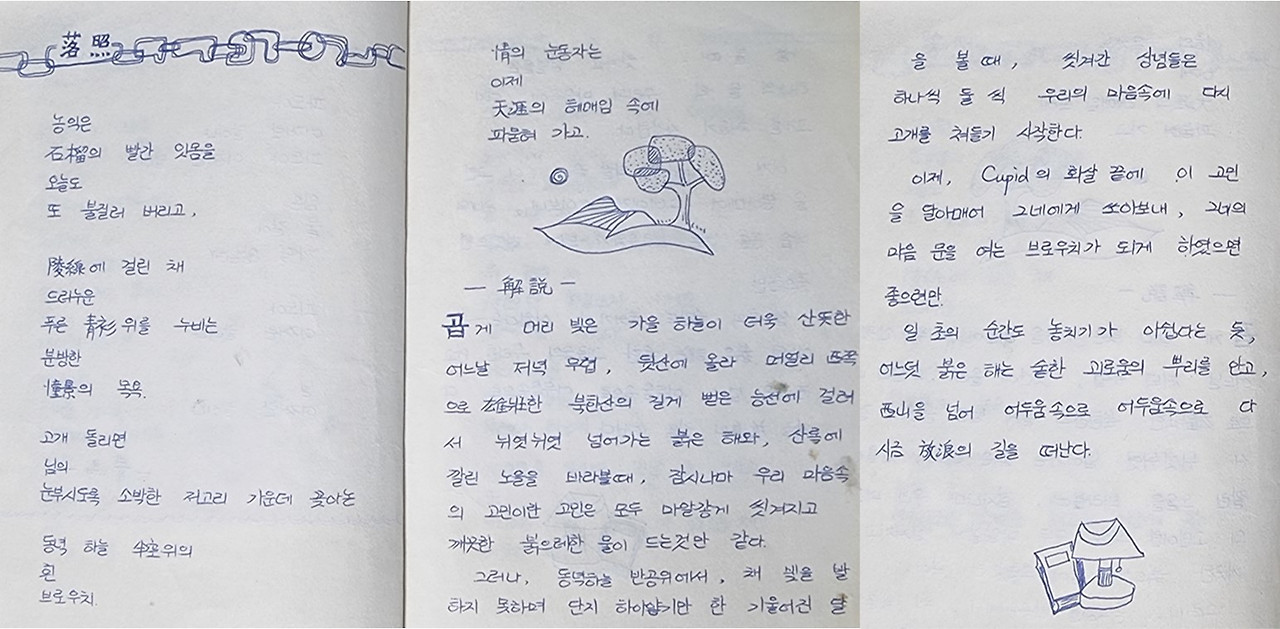 落照
농익은
石榴의 빨간 잇몸을
오늘도
또 불질러 버리고,
陵線에 걸린 채
드러누운
푸른 靑衫위를 누비는
분방한
憧憬의 목욕.
고개 돌리면
님의
눈부시도록 소박한 저고리 가운데 꽂아논
동녘 하늘 半空위의
흰
브로우치.
情의 눈동자는
이제
天涯의 헤매임 속에
파묻혀 가고.
— 解説 —
곱게 머리 빚은 가을 하늘이 더욱 산뜻한
어느날 저녁 무렵, 뒷산에 올라 머얼리 西쪽
으로 雄壯한 북한산의 길게 뻗은 능선에 걸려
서 뉘엿뉘엿 넘어가는 붉은 해와, 산록에
깔린 노을을 바라볼때, 잠시나마 우리 마음속
의 고민이란 고민은 모두 마알갛게 씻겨지고
깨끗한 붉으레한 물이 드는것만 같다.
그러나, 동녘하늘 반공위에서, 채 빛을 발
하지 못하며 단지 하이얗기만 한 기울어진 달
을 볼 때, 씻겨간 상념들은
하나씩 둘 씩 우리의 마음속에 다시
고개를 쳐들기 시작한다.
이제, Cupid의 화살 끝에 이 고민
을 달아매어 그네에게 쏘아보내, 그녀의
마음 문을 여는 브로우치가 되게 하였으면
좋으련만.
일 초의 순간도 놓치기가 아쉽다는 듯,
어느덧 붉은 해는 숱한 괴로움의 뿌리를 안고,
西山을 넘어 어두움속으로 어두움속으로 다
시금 放浪의 길을 떠난다.